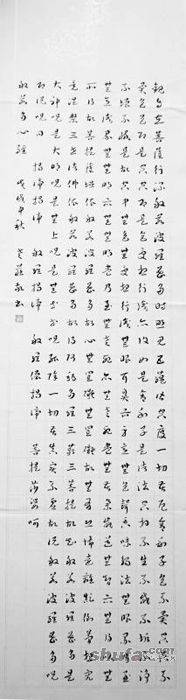 觀自在菩薩行深般若波羅蜜多時照見五蘊皆空度一切苦厄舍利子色不
異空空不異色色即是空空即是色受想行識亦復如是舍利子是諸法空相不生不滅不垢不淨
不增不減是故空中無色無受想行識無眼耳鼻舌身意無色聲香味觸法無眼界乃至
無意識界無無明亦無無明盡乃至無老死亦無老死盡無苦集滅道無智亦無得以無
所得故菩提薩埵依般若波羅蜜多故心無罣礙無罣礙故無有恐怖遠離顛倒夢想究
竟涅槃三世諸佛依般若波羅蜜多故得阿耨多羅三藐三菩提故知般若波羅蜜多是
大神咒是大明咒是無上咒是無等等咒能除一切苦真實不虛故說般若波羅蜜多咒
即說咒曰 揭諦揭諦 般羅揭諦 般羅僧揭諦 菩提莎婆訶
般若多心經 戊戌中秋
shufa